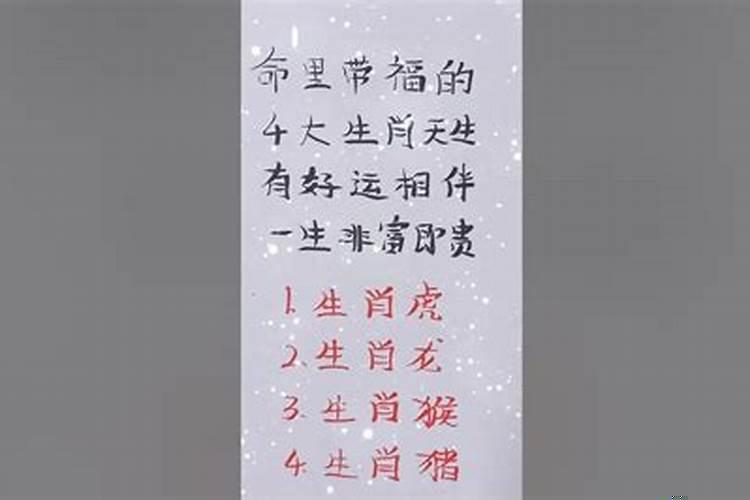 命里带福的
4大生肖天生
有好运相伴
一生非富即贵
1.生肖虎
2.生肖龙
3.生肖猴
4.生肖猪